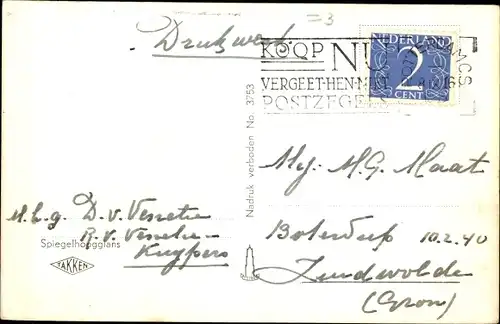 =3
Drukwerk
KOOP NU
NEDERLAND
2
CENT
VERGEET-HEN-NIET
POSTZEGELS
Nadruk verboden No. 3753
Mej. M.G. Maat
M.h.g. D. v. Venetie
R. v. Venetie-
Kuypers
Spiegelhoogglans
TAKKEN
Boterdiep 10.2.40
Zuidwolde
(Gron)